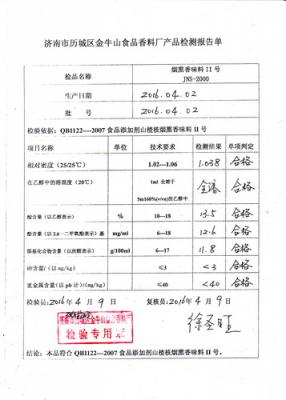 济南市历城区金牛山食品香料厂产品检测报告单
检品名称 烟熏香味料II号
JNS-2000
生产日期 2016.04.02
批 号 2016.04.02
检验依据：QB1122—2007食品添加剂山楂核烟熏香味料II号
项目名称 单位 技术要求 检测结果 单项判定
相对密度（25/25℃） 1.02—1.06 1.038 合格
在乙醇中的溶混度（20℃） 1ml 全溶于 全溶 合格
5ml60%(v/v)的乙醇中
酸含量（以乙酸表示） % 10—18 13.5 合格
酚含量（以2.6—二甲氧酚表示）基 mg/ml 6—18 12.6 合格
羰基化合物含量（以糠醛表示） g/100ml 6—17 11.8 合格
砷含量/（以mg/kg） ≤3 <3 合格
重金属含量(以pb计)/(mg/kg) ≤40 <40 合格
检验员:2016年4月9日 复核员:2016年4月9日
济南市历城区金牛山食品香料厂
检验专用章
徐圣旺
结论：本品符合QB1122—2007食品添加剂山楂核烟熏香味料II号.